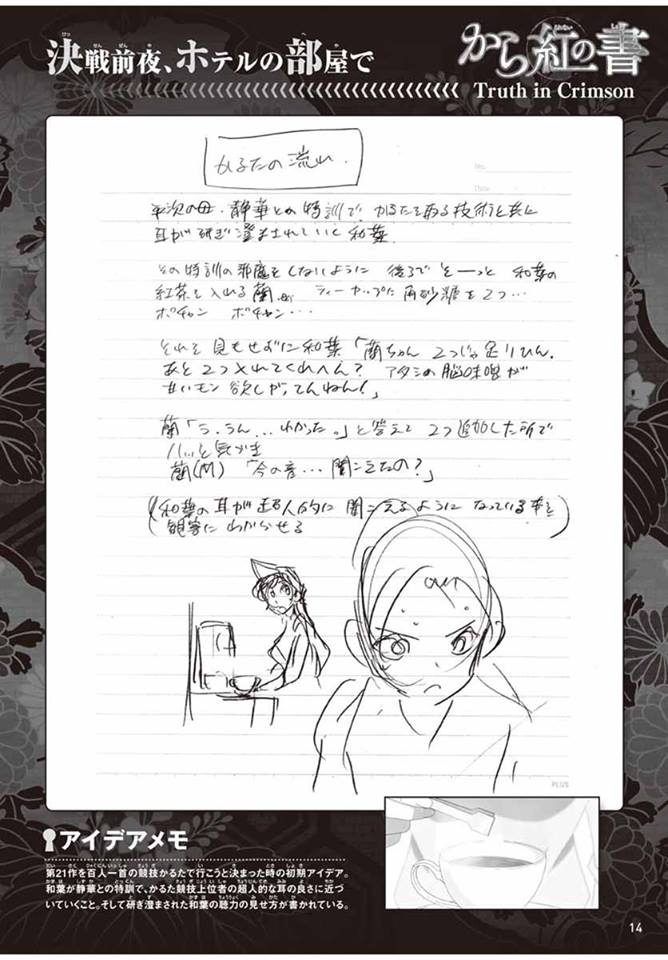 決戦前夜、ホテルの部屋で
から紅の書
Truth in Crimson
かるたの流れ
平次の母・静華との特訓で かるたを取る技術と共に
耳が研ぎ澄まされていく和葉
その特訓の邪魔をしないように 後ろでそーっと 和葉の
紅茶を入れる蘭が ティーカップに角砂糖を2つ…
ポチャン ポチャン…
それを見もせずに和葉「蘭ちゃん 2つじゃ足りひん。
あと2つ入れてくれへん? アタシの脳味噌が
甘いモン欲しがってんねん!」
蘭「う、うん…わかった。」と答えて 2つ追加した所で
ハッと気づき
蘭(M)「今の音…聞こえたの?」
(和葉の耳が超人的に聞こえるようになっている事を
観客にわからせる)
PLUS
アイデアメモ
第21作を百人一首の競技かるたで行こうと決まった時の初期アイデア。
和葉が静華との特訓で、かるた競技上位者の超人的な耳の良さに近づ
いていくこと。そして研ぎ澄まされた和葉の聴力の見せ方が書かれている。
14